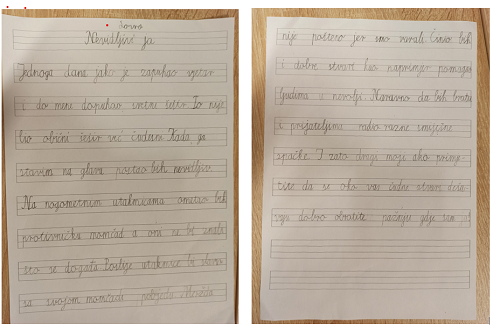 Nevidljivi ja
Jednoga dana jako je zapuhao vjetar
i do mene dopuhao vražji šešir. To nije
bio obični šešir već čudesni. Kada ga
stavim na glavu postao bih nevidljiv.
Na nogometnim utakmicama ometao bih
protivničku momčad a oni ne bi znali
što se događa. Poslije utakmice bi slavio
sa svojom momčadi pobjedu.
nije pošteno jer smo varali. Činio bih
i dobre stvari kao naprimjer pomagao
ljudima u nevolji. Naravno da bih bratu
i prijateljima radio razne smiješne
spačke. I zato dragi moji ako primje-
tite da se oko vas čudne stvari doga-
đaju dobro obratite pažnju gdje sam ja!